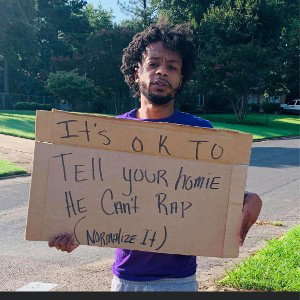 It's OK TO
Tell your homie
He Can't Rap
(Normalize It)